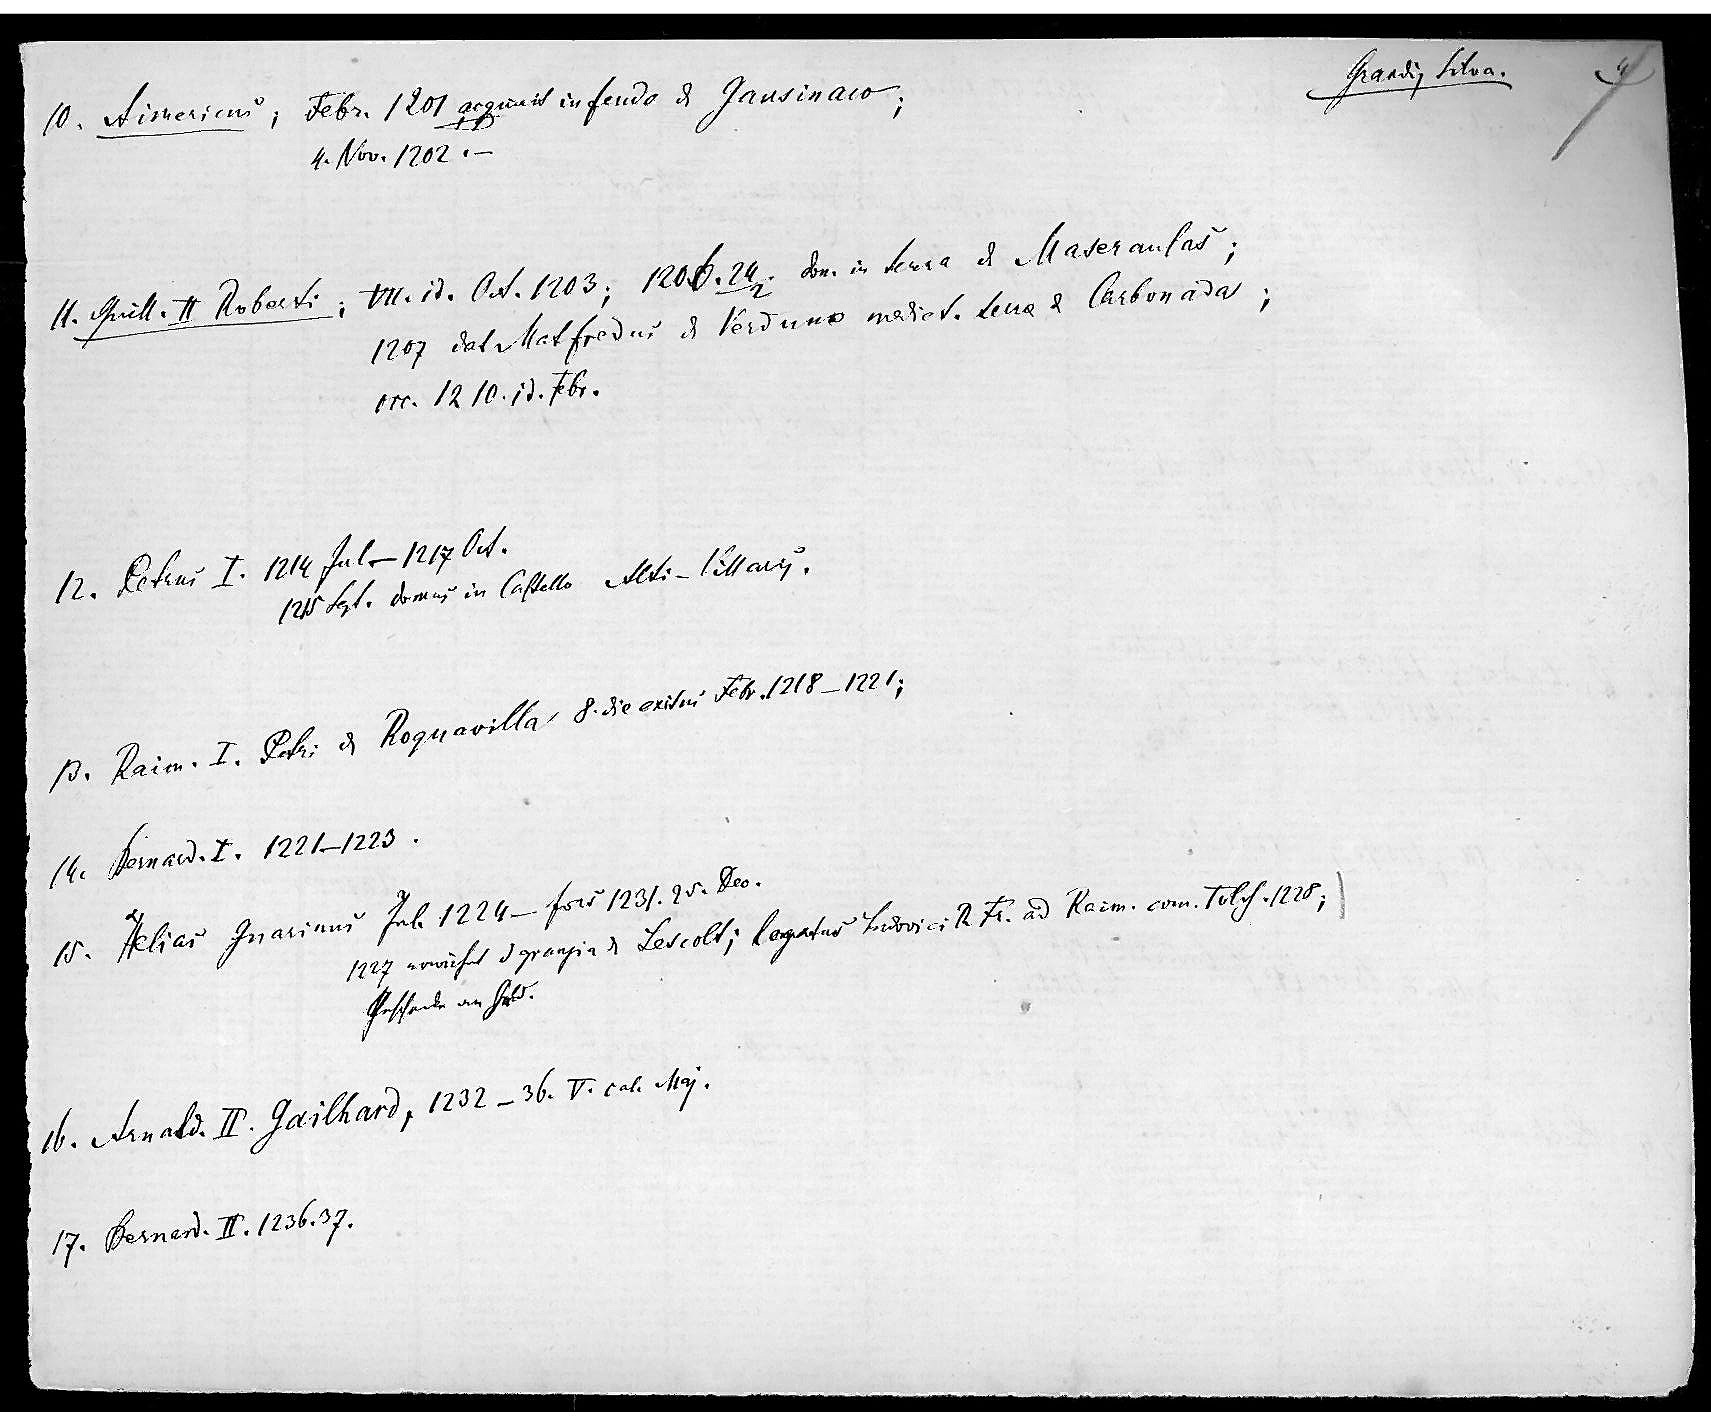 Grandis Silva. 4
10. Aimericus; Febr. 1201 acquirit in feudo de Gausinaco;
4. Nov. 1202.—
11. Guill. II Roberti; VII. id. Oct. 1203; 1206. 24. don. in terra de Maseraulas;
1207 dat Matfredus de Verduno mediet. terrae de Carbonada;
occ. 1210. id. Febr.
12. Petrus I. 1214 Jul.—1217 Oct.
1215 Sept. domus in Castello Alti-Villaris.
13. Raim. I. Petri de Roquavilla 8. die exitus Febr. 1218—1221;
14. Bernard. I. 1221—1223.
15. Helias Guarinus Jul. 1224— 1231. 25. Dec.
1227 grangia de Lescolt; legatus Ludovici R. Fr. ad Raim. com. Tolos. 1228;
16. Arnald. II. Gailhard, 1232—36. V. cal. Maj.
17. Bernard. II. 1236.37.